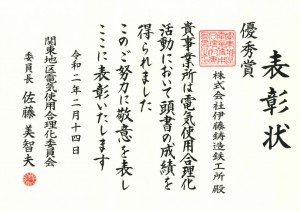 表彰状
優秀賞
株式会社伊藤鋳造鉄工所殿
貴事業所は電気使用合理化
活動において頭書の成績を
得られました
このご努力に敬意を表し
ここに表彰いたします
令和二年二月十四日
関東地区電気使用合理化委員会
委員長 佐藤美智夫